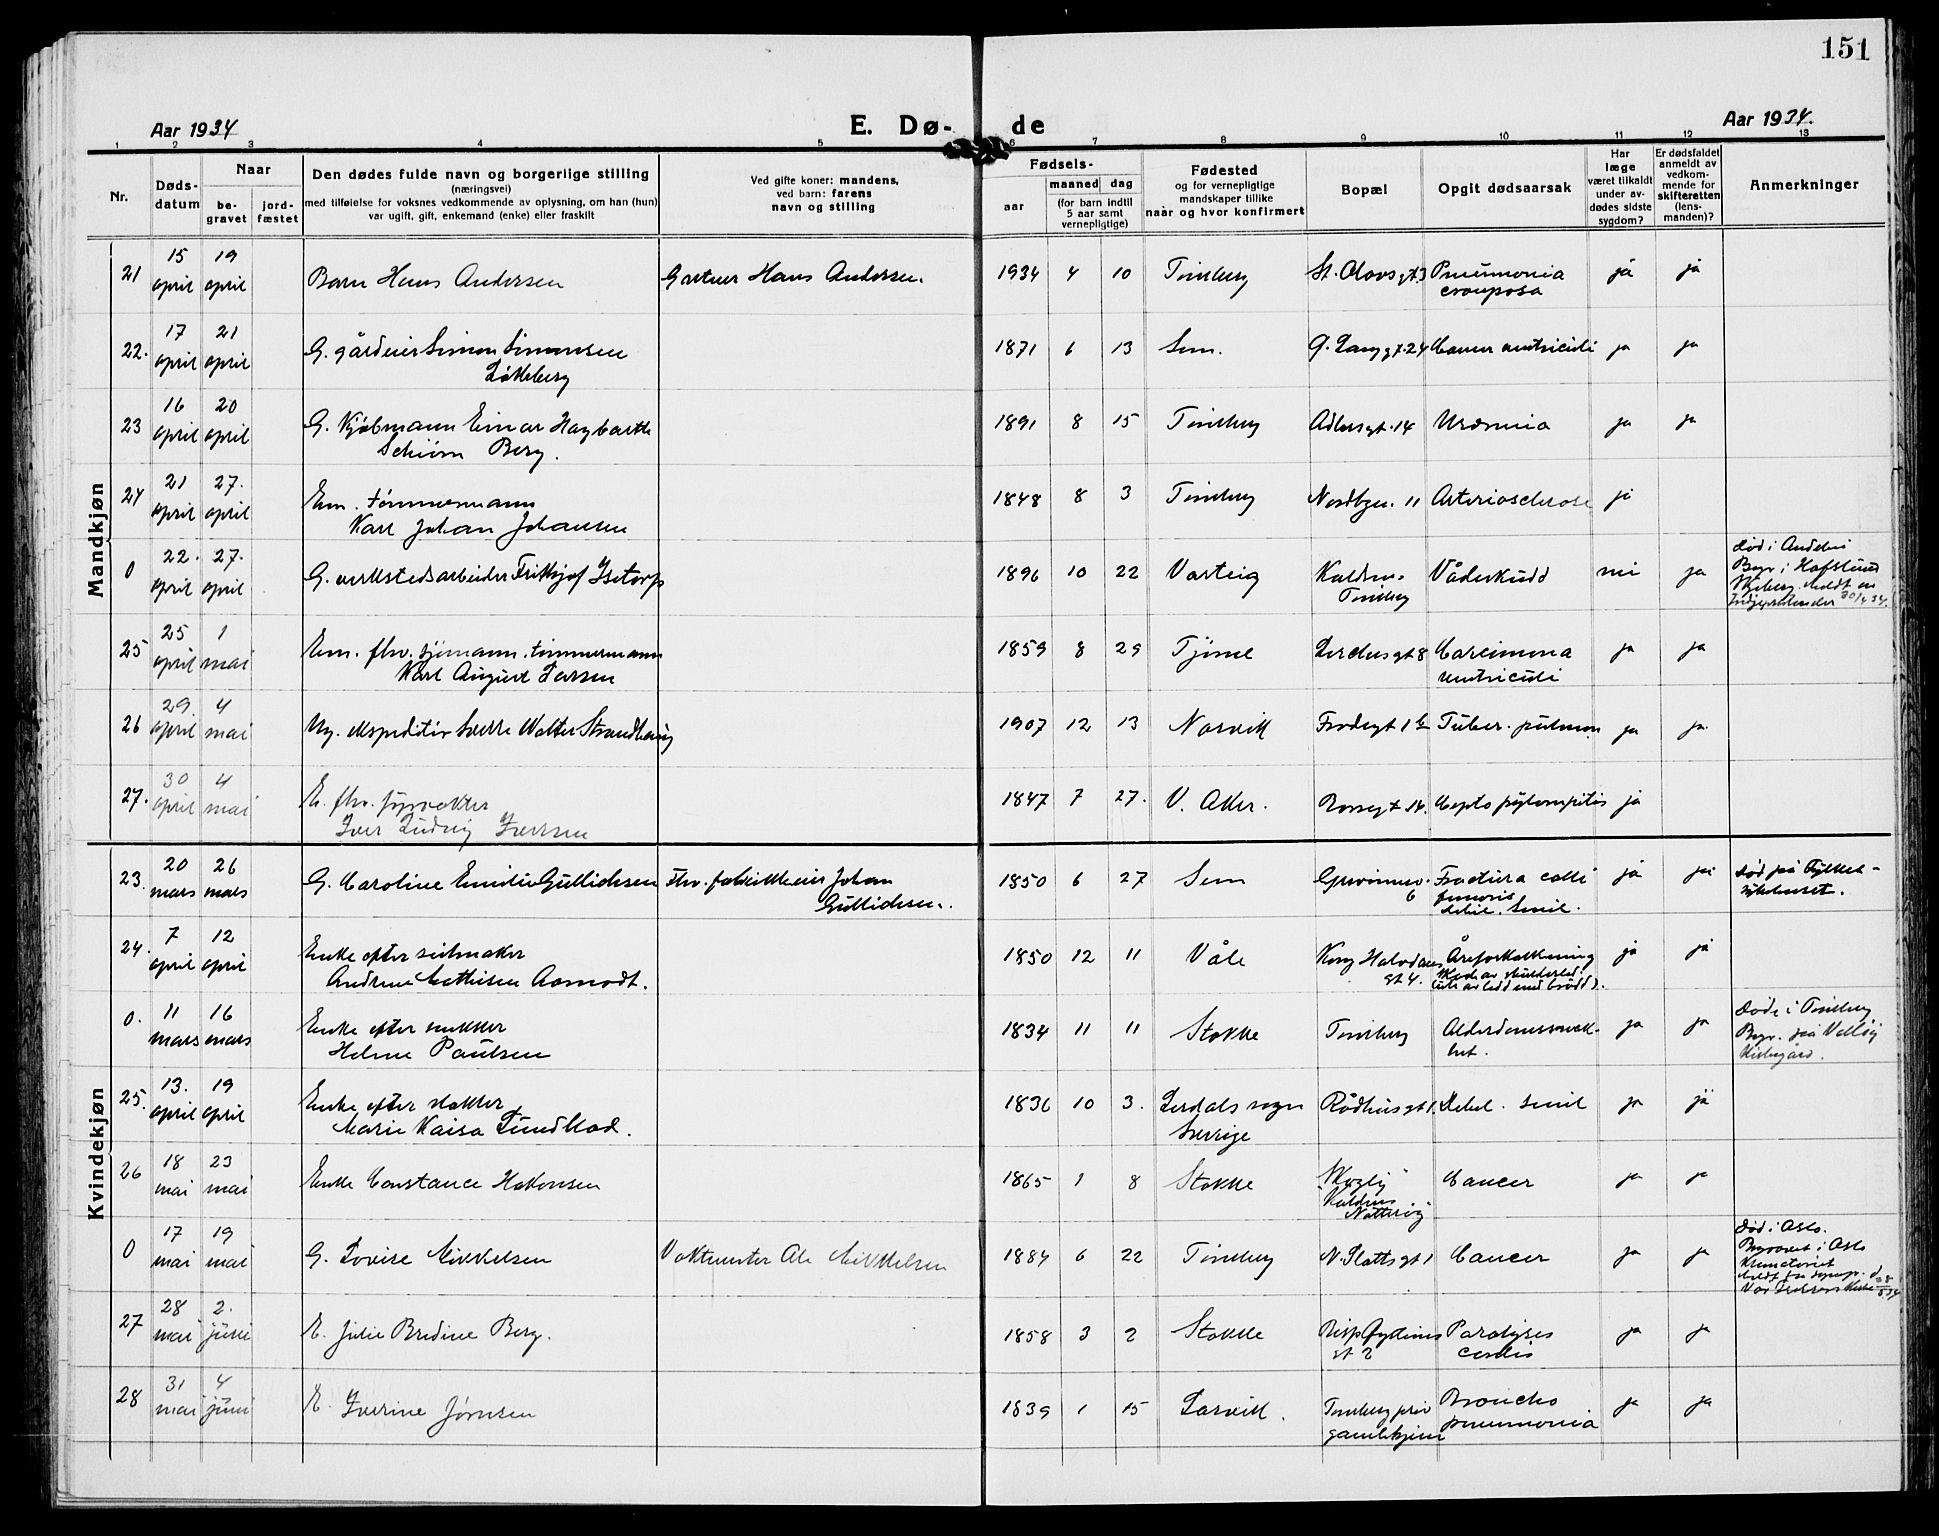 151
Aar 1934
E. Dø-de
Aar 1934.
1 2 3 4 5 6 7 8 9 10 11 12 13
Nr.
Døds-
datum
Naar
be-
gravet
jord-
fæstet
Den dødes fulde navn og borgerlige stilling
(næringsvei)
med tilføielse for voksnes vedkommende av oplysning, om han (hun)
var ugift, gift, enkemand (enke) eller fraskilt
Ved gifte koner: mandens,
ved barn: farens
navn og stilling
Fødsels-
aar
maaned
dag
(for barn indtil
5 aar samt
vernepligtige)
Fødested
og for vernepligtige
mandskaper tillike
naar og hvor konfirmert
Bopæl
Opgit dødsaarsak
Har
læge
været tilkaldt
under av-
dødes sidste
sygdom?
Er dødsfaldet
anmeldt av
vedkom-
mende for
skifteretten
(lens-
manden)?
Anmerkninger
Mandkjøn
21 15 april 19 april Barn Hans Andersen Gartner Hans Andersen. 1934 4 10 Tønsberg St. Olavsgt. 3 Pneumonia crouposa ja ja
22. 17 april 21 april G. gårdeier Simon Simonsen Løkeberg 1871 6 13 Sem. G. Langgt. 24 Cancer ventriculi ja ja
23 16 april 20 april G. Kjøbmann Einar Hagbarth Schiørn Berg. 1891 8 15 Tønsberg Adlersgt. 14 Uræmia ja ja
24 21 april 27. april Em. tømmermann Karl Johan Johansen 1848 8 3 Tønsberg Nordbyen. 11 Arteriosclerose ja
0 22. april 27. april G. verkstedsarbeider Frithjof Isetorp 1896 10 22 Varteig Kaldnes Tønsberg Vådeskudd nei ja Død i Andebu Begr. i Hafslund Skjeberg. Meldt 30/4 34.
25 25 april 1 mai Em. fhv. sjømann, tømmermann Karl August Larsen 1859 8 29 Tjøme gt 8 Carcinoma ventriculi ja ja
26 29. april 4 mai Ug. ekspeditør Sverre Walter Strandberg 1907 12 13 Narvik Frodegt 1 b Tuber. pulmon ja ja
27. 30 april 4 mai E. fhv. fyrvokter Iver Ludvig Iversen 1847 7 27. V. Aker. gt 14. ja
Kvindekjøn
23. 20 mars 26 mars G. Caroline Emilie Gullichsen Fhv. fabrikkeier Johan Gullichsen. 1850 6 27 Sem 6 Fractura colli femoris debil. senil. ja ja Død på Fylkes-sykehuset.
24. 7 april 12 april Enke efter seilmaker Andrine Mathisen Aamodt. 1850 12 11 Våle Kong Halvdans gt 4. Åreforkalkning ja ja
0. 11 mars 16 mars Enke efter snekker Helene Paulsen 1834 11 11 Stokke Tønsberg Alderdomssvak-het. ja ja Døde i Tønsberg Begr. på Valløy Kirkegård.
25. 13. april 19 april Enke efter slakter Marie Kaisa Lundblad. 1836 10 3. Lerdals sogn Sverrige Rådhusgt 1. Debil. senil ja ja
26 18 mai 23 mai Enke Constance Hakonsen 1865 1 8 Stokke "Skogly" Kaldnes Nøtterøy Cancer ja ja
0 17 mai 19 mai G. Lovise Mikkelsen Vaktmester Ole Mikkelsen 1884 6 22 Tønsberg N. Slottsgt 1 Cancer ja ja Død i Oslo. Begravet i Oslo Krematoriet Meldt fra sogнepr. i Vår Frelsers Kirke 28/5 34
27 28 mai 2. juni E. Julie Bredine Berg. 1858 3 2 Stokke gt 2 Paralysis cordis ja ja
28 31 mai 4 juni E. Iverine Jørnsen 1839 1 15 Larvik. Tønsberg priv gamlehjem Broncho pneumonia ja ja